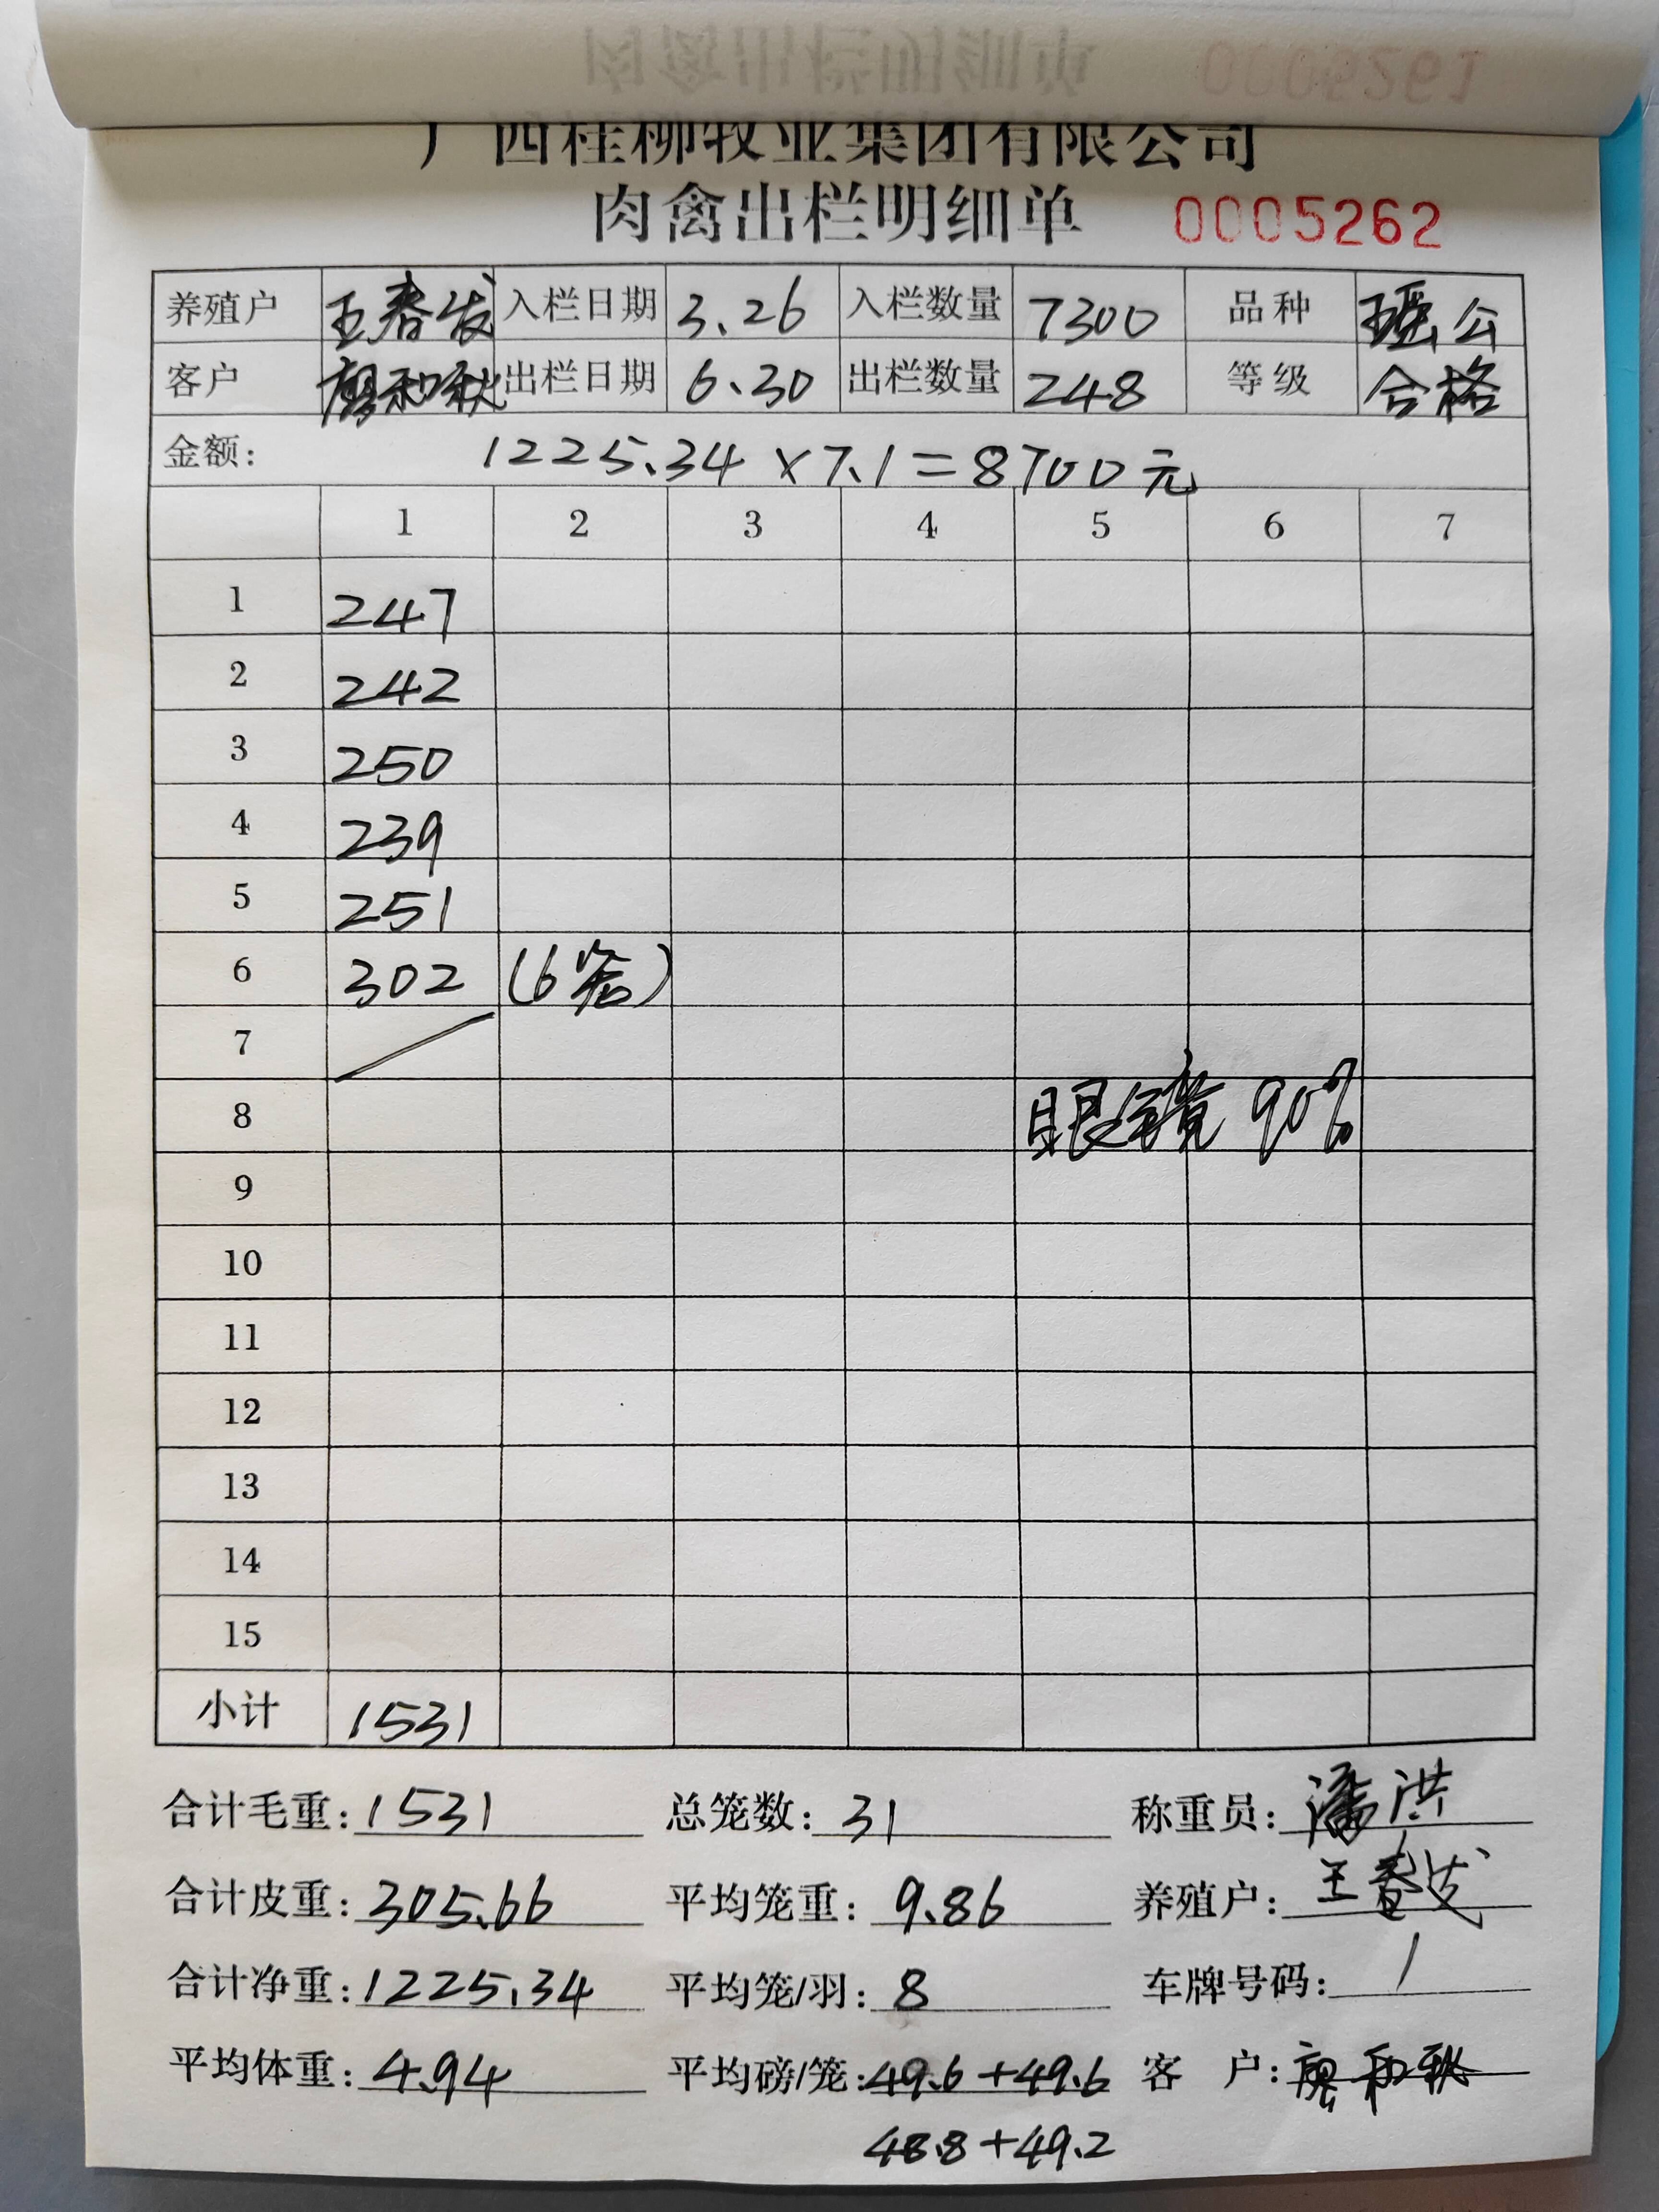 广西桂柳牧业集团有限公司
肉禽出栏明细单 0005262
养殖户 王春发 入栏日期 3.26 入栏数量 7300 品种 瑶公
客户 廖和秋 出栏日期 6.30 出栏数量 248 等级 合格
金额: 1225.34×7.1=8700元
1 2 3 4 5 6 7
1 247
2 242
3 250
4 239
5 251
6 302 (6笼)
7
8 眼镜90%
9
10
11
12
13
14
15
小计 1531
合计毛重: 1531 总笼数: 31 称重员: 潘洪
合计皮重: 305.66 平均笼重: 9.86 养殖户: 王春发
合计净重: 1225.34 平均笼/羽: 8 车牌号码: /
平均体重: 4.94 平均磅/笼: 49.6+49.6 客 户: 廖和秋
48.8+49.2